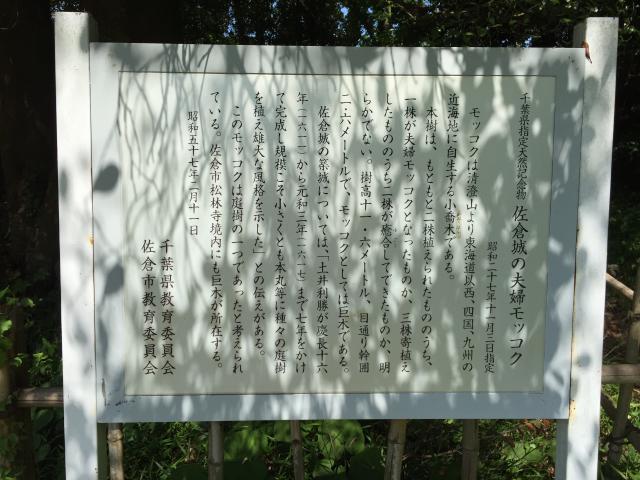 千葉県指定天然記念物 佐倉城の夫婦モッコク
昭和二十七年十一月三日指定
モッコクは清澄山より東海道以西、四国、九州の
近海地に自生する小喬木である。
本樹は、もともと二株植えられたもののうち、
一株が夫婦モッコクとなったものか、三株寄植え
したもののうち二株が癒合してできたものか、明
らかでない。樹高十一・六メートル、目通り幹囲
二・六八メートルで、モッコクとしては巨木である。
佐倉城の築城については、「土井利勝が慶長十六
年(一六一一)から元和三年(一六一七)まで七年をかけ
て完成し規模こそ小さくとも本丸等に種々の庭樹
を植え雄大な風格を示した」との伝えがある。
このモッコクは庭樹の一つであったと考えられ
ている。佐倉市松林寺境内にも巨木が所在する。
昭和五十七年二月十一日
千葉県教育委員会
佐倉市教育委員会